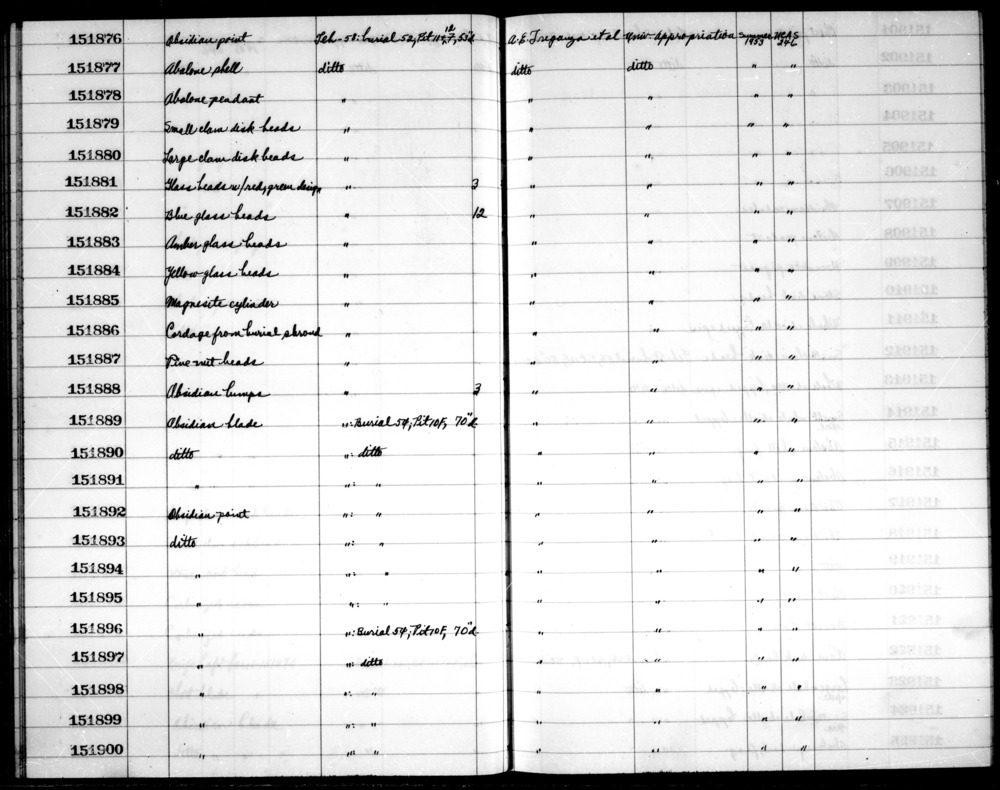 151876 Obsidian point Teh-58: burial 52, Pit 11 55"d. A.E. Treganza et al Univ. Appropriation Summer 1953 UCAS 246
151877 Abalone shell ditto ditto ditto " "
151878 Abalone pendant " " " " "
151879 Small clam disk beads " " " " "
151880 Large clam disk beads " " " " "
151881 Glass beads w/red, green design " 3 " " " "
151882 Blue glass beads " 12 " " " "
151883 Amber glass beads " " " " "
151884 Yellow glass beads " " " " "
151885 Magnesite cylinder " " " " "
151886 Cordage from burial shroud " " " " "
151887 Pine nut beads " " " " "
151888 Obsidian lumps " 3 " " " "
151889 Obsidian blade ": Burial 54, Pit 10F, 70"d. " " " "
151890 ditto ": ditto " " " "
151891 " ": " " " " "
151892 Obsidian point ": " " " " "
151893 ditto ": " " " " "
151894 " ": " " " " "
151895 " ": " " " " "
151896 " ": Burial 54, Pit 10F, 70"d. " " " "
151897 " ": ditto " " " "
151898 " ": " " " " "
151899 " ": " " " " "
151900 " ": " " " " "